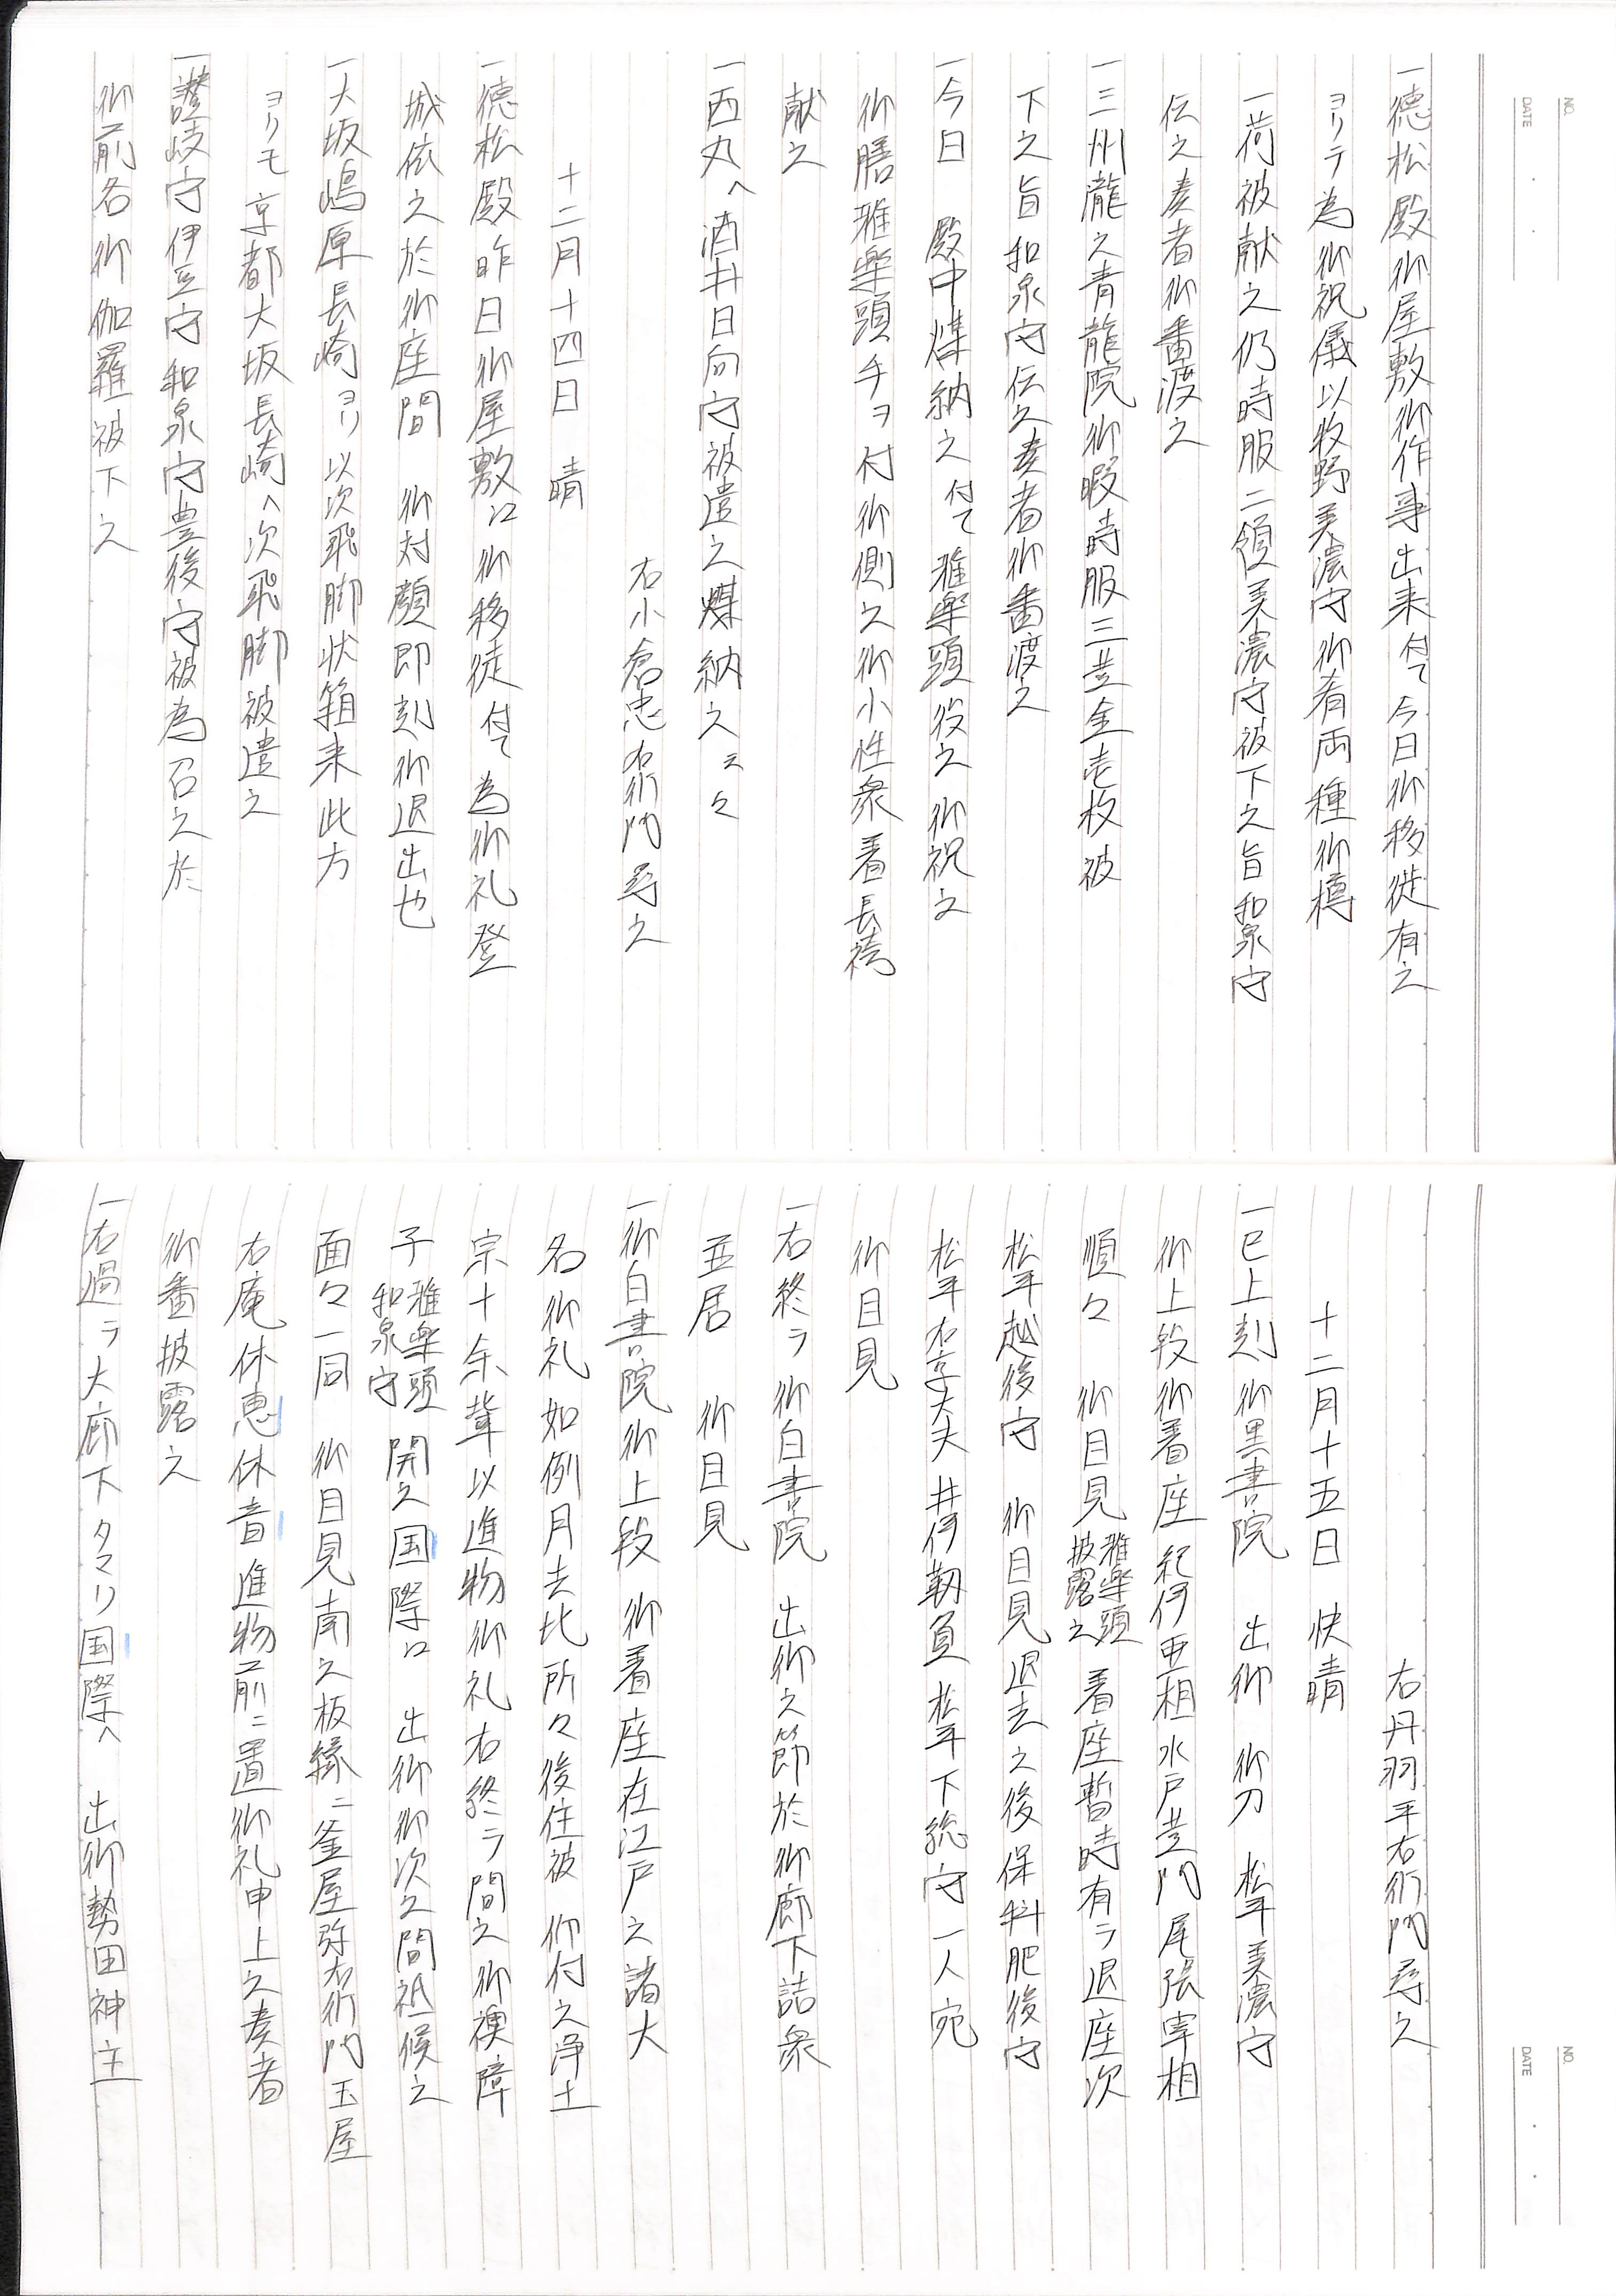 一徳松殿御屋敷御作事出来付て今日御移徙有之
ヨリテ為御祝儀以牧野美濃守御肴両種御樽
一荷被献之仍時服二領美濃守被下之旨和泉守
伝之奏者御番渡之
一三州瀧之青龍院御暇時服三并金壱枚被
下之旨和泉守伝之奏者御番渡之
一今日 殿中煤納之付て雅楽頭役之御祝之
御膳雅楽頭手ヲ付御側之御小性衆着長袴
献之
一西丸へ酒井日向守被遣之煤納之云々
右小倉忠右衛門尋之
十二月十四日 晴
一徳松殿昨日御屋敷江御移徒付て為御礼登
城依之於御座間 御対顔即刻御退出也
一大坂嶋原長崎ヨリ以次飛脚状箱来此方
ヨリモ京都大坂長崎へ次飛脚被遣之
一讃岐守伊豆守和泉守豊後守被為召之於
御前各御伽羅被下之
NO.
DATE ・ ・
右丹羽平右衛門尋之
十二月十五日 快晴
一巳上刻御黒書院 出御 御刀 松平美濃守
御上段御着座紀伊亜相水戸黄門尾張宰相
順々 御目見雅楽頭披露之着座暫時有テ退座次
松平越後守 御目見退去之後保科肥後守
松平右京大夫井伊靱負松平下総守一人宛
御目見
一右終テ御白書院 出御之節於御廊下詰衆
並居 御目見
一御白書院御上段御着座在江戸之諸大
名御礼如例月去比所々後住被 仰付之浄土
宗十余輩以進物御礼右終テ間之御襖障
子雅楽頭和泉守開之国際江 出御御次之間祗候之
面々一同 御目見南之板縁ニ釜屋弥右衛門玉屋
右庵休恵休音進物前ニ置御礼申上之奏者
御番披露之
一右過テ大廊下タマリ国際へ 出御勢田神主
NO.
DATE ・ ・